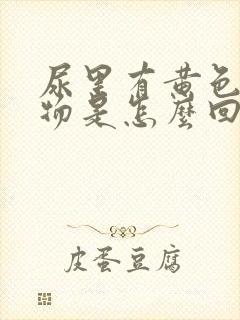 尿里有黄色
物是怎麼回
皮蛋豆腐